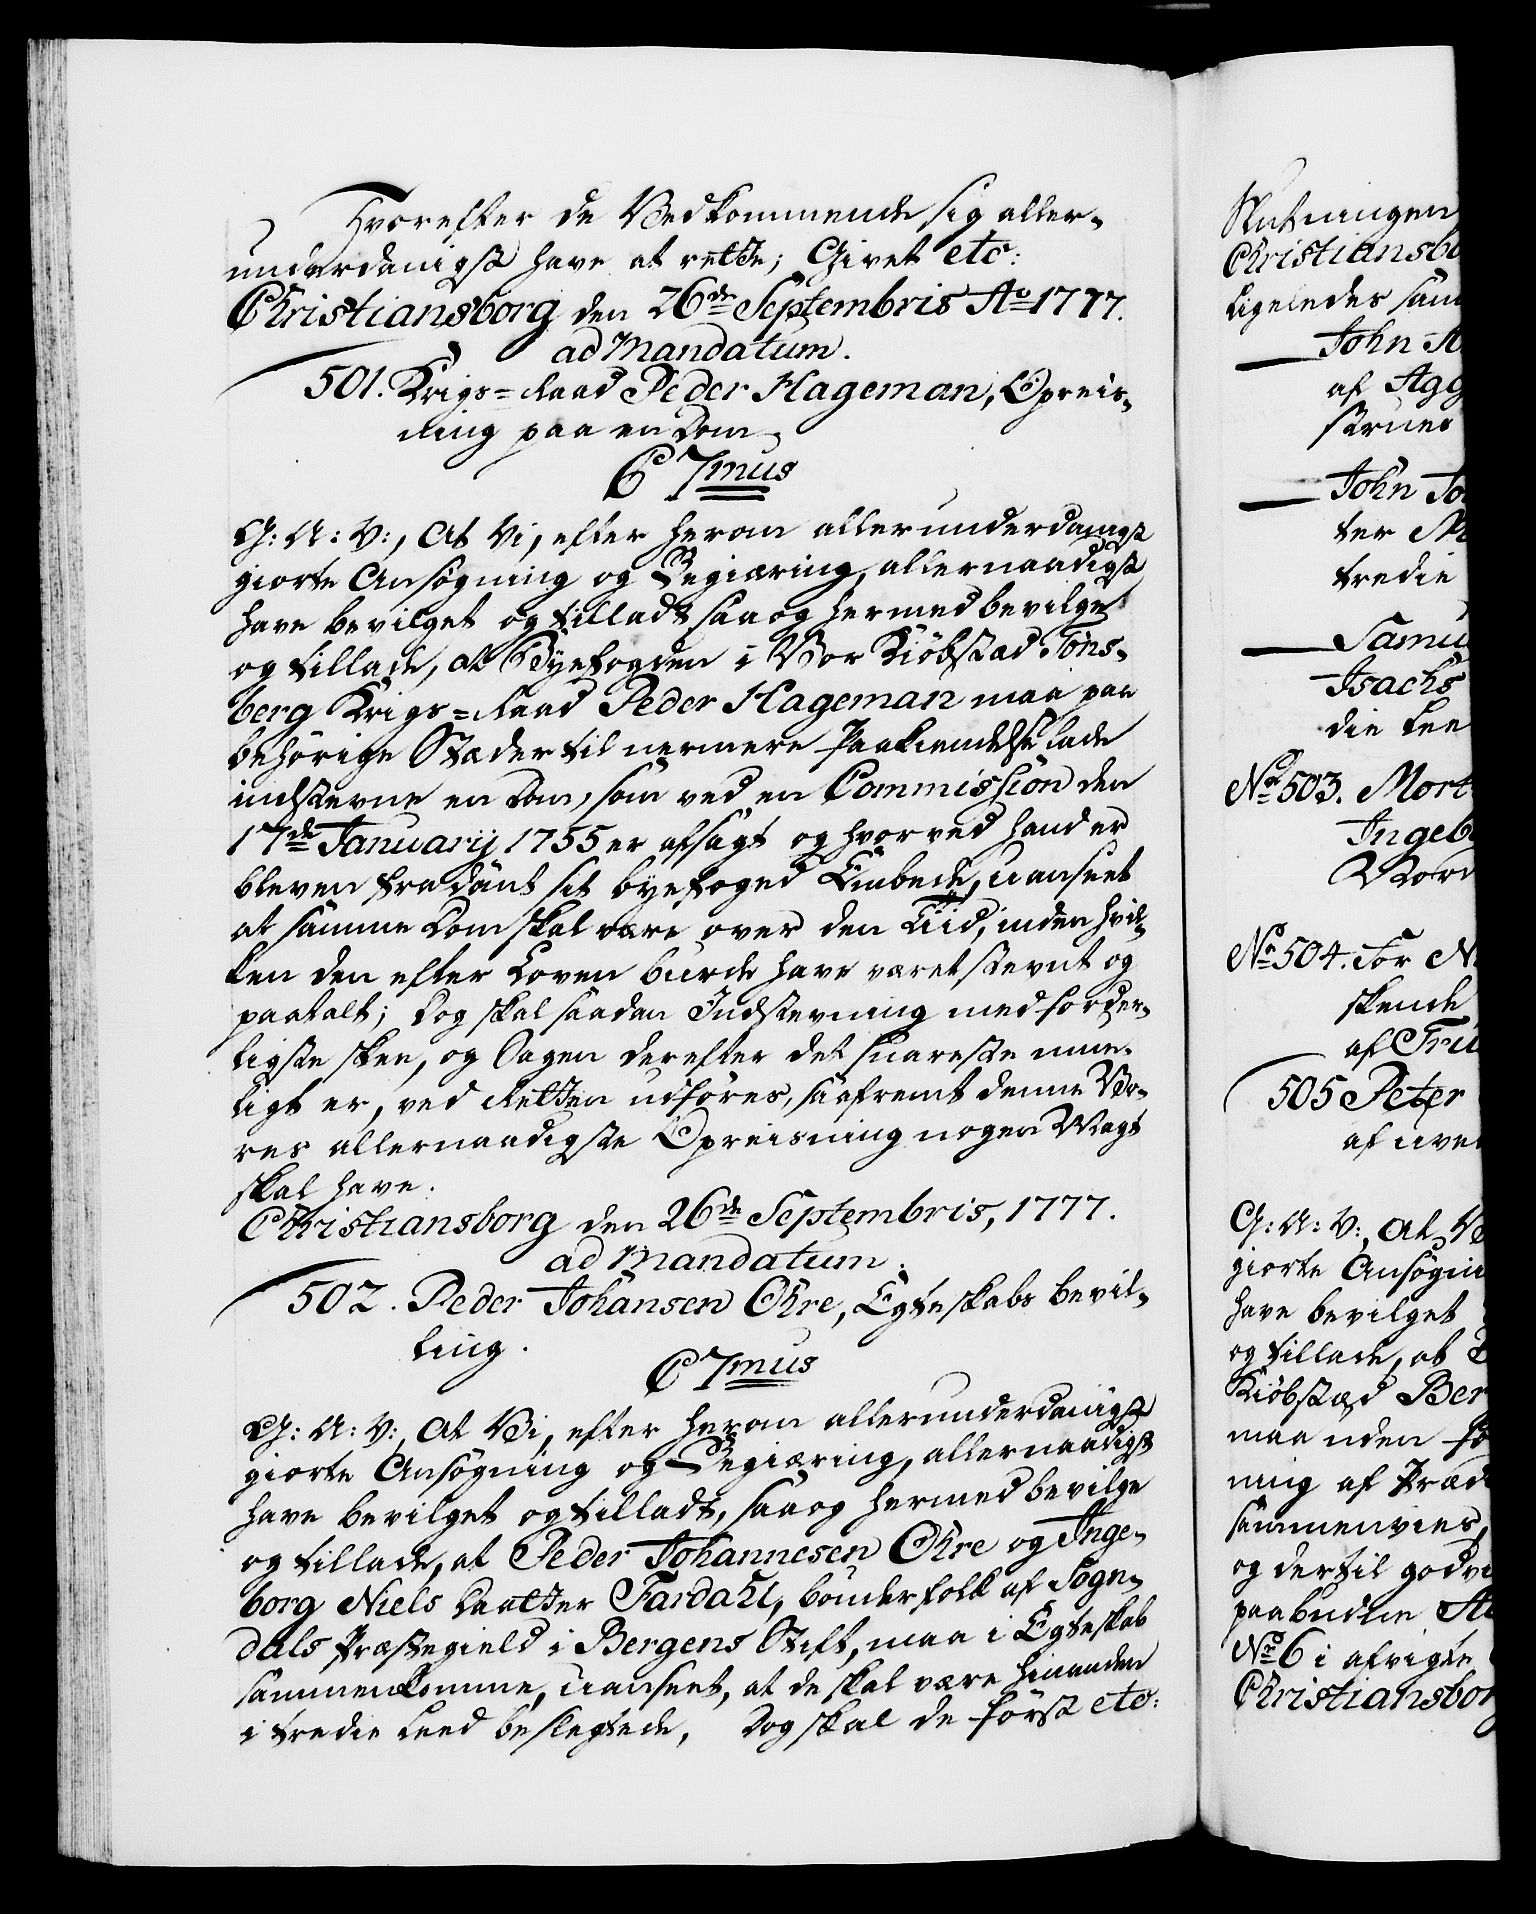 Hvorefter de Vedkommende sig aller-
underdanigst have at rette; Givet etc:
Christiansborg den 26de Septembris Ao 1777.
ad Mandatum.
501. Krigs-Raad Peder Hageman, Opreis-
ning paa en Dom.
C 7mus
G: A: V:, At Vi, efter herom allerunderdanigst
giorte Ansøgning og Begiæring, allernaadigst
have bevilget og tilladt saa og hermed bevilge
og tillade, at Byefogden i Vor Kiöbstad Töns-
berg Krigs-Raad Peder Hageman maa paa
behörige Stæder til nermere Paakiendelse lade
indstevne en Dom, som ved en Commission den
17de Januarij 1755 er afsagt og hvorved hand er
bleven fradömt sit byefoged Embede, uanseet
at samme Dom skal være over den Tiid, inden hvil-
ken den efter Loven burde have været stevnt og
paatalt; Dog skal saadan Indstevning med forder-
ligste skee, og Sagen derefter det snareste mue-
ligt er, ved Retten udföres, saafremt denne Vo-
res allernaadigste Opreisning nogen Magt
skal have.
Christiansborg den 26de Septembris, 1777.
ad Mandatum.
502. Peder Johansen Ohre, Egteskabs bevil-
ling.
C 7mus
G: A: V:, At Vi, efter herom allerunderdanigst
giorte Ansögning og Begiæring, allernaadigst
have bevilget og tilladt, saa og hermed bevilge
og tillade, at Peder Johannesen Ohre og Inge-
borg Niels Daatter Fardahl, bonderfolk af Sogn-
dals Præstegield i Bergens Stift, maa i Egteskab
sammenkomme, uanseet, at de skal være hinanden
i tredie Leed beslegtede, Dog skal de först etc:
Slutningen
Christiansbo
ligeledes sam
John A
af Agg
strues
John Jo
ter
tredie
Samu
Isachs
die Lee
No 503. Mort
Ingeb
Nord
No 504. Tor N
skende
af Tru
505 Peter
af uve
G: A: V:, At V
giorte Ansögni
have bevilget
og tillade, at
Kiöbstæd Ber
maa uden fo
ning af Præd
sammenvies,
og dertil godv
paabudne
No 6 i afvigte
Christiansborg